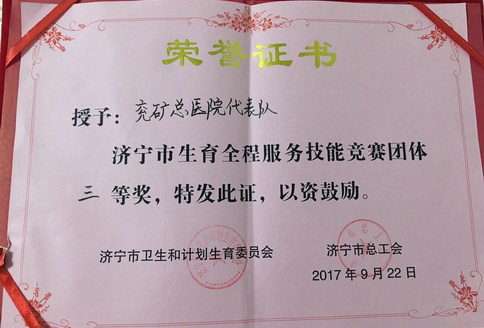 荣誉证书
授予：兖矿总医院代表队
济宁市生育全程服务技能竞赛团体
三等奖，特发此证，以资鼓励。
济宁市卫生和计划生育委员会 济宁市总工会
2017年9月22日